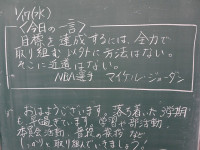 1/17(水)
<今日の一言>
目標を達成するには、全力で
取り組む以外に方法はない。
そこに近道はない。
NBA選手 マイケル・ジョーダン
おはようございます。落ち着いた学期
も
学習や部活動、
委員会活動、普段の
しっかりと取り組んでいきましょう。